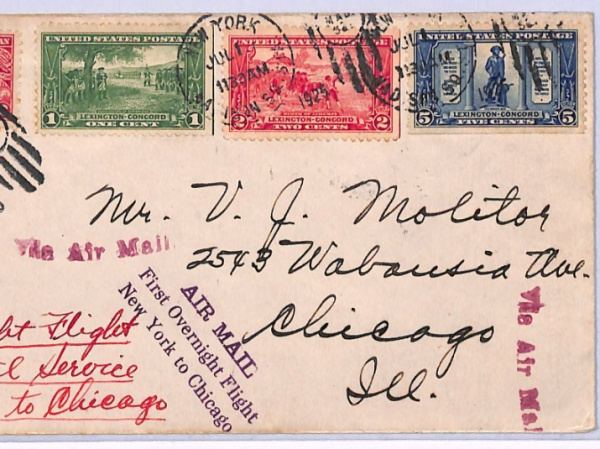 UNITED STATES POSTAGE
1 LEXINGTON-CONCORD 1
ONE CENT
UNITED STATES POSTAGE
BIRTH OF LIBERTY
2 LEXINGTON-CONCORD 2
TWO CENTS
UNITED STATES POSTAGE
5 LEXINGTON-CONCORD 5
FIVE CENTS
NEW YORK
JUL 1
1130AM
1925
JUL 1
1130AM
Mr. V. J. Molitor
2543 Wabansia Ave.
Chicago
Ill.
Via Air Mail
AIR MAIL
First Overnight Flight
New York to Chicago
Via Air Mai
ht Flight
l Service
to Chicago